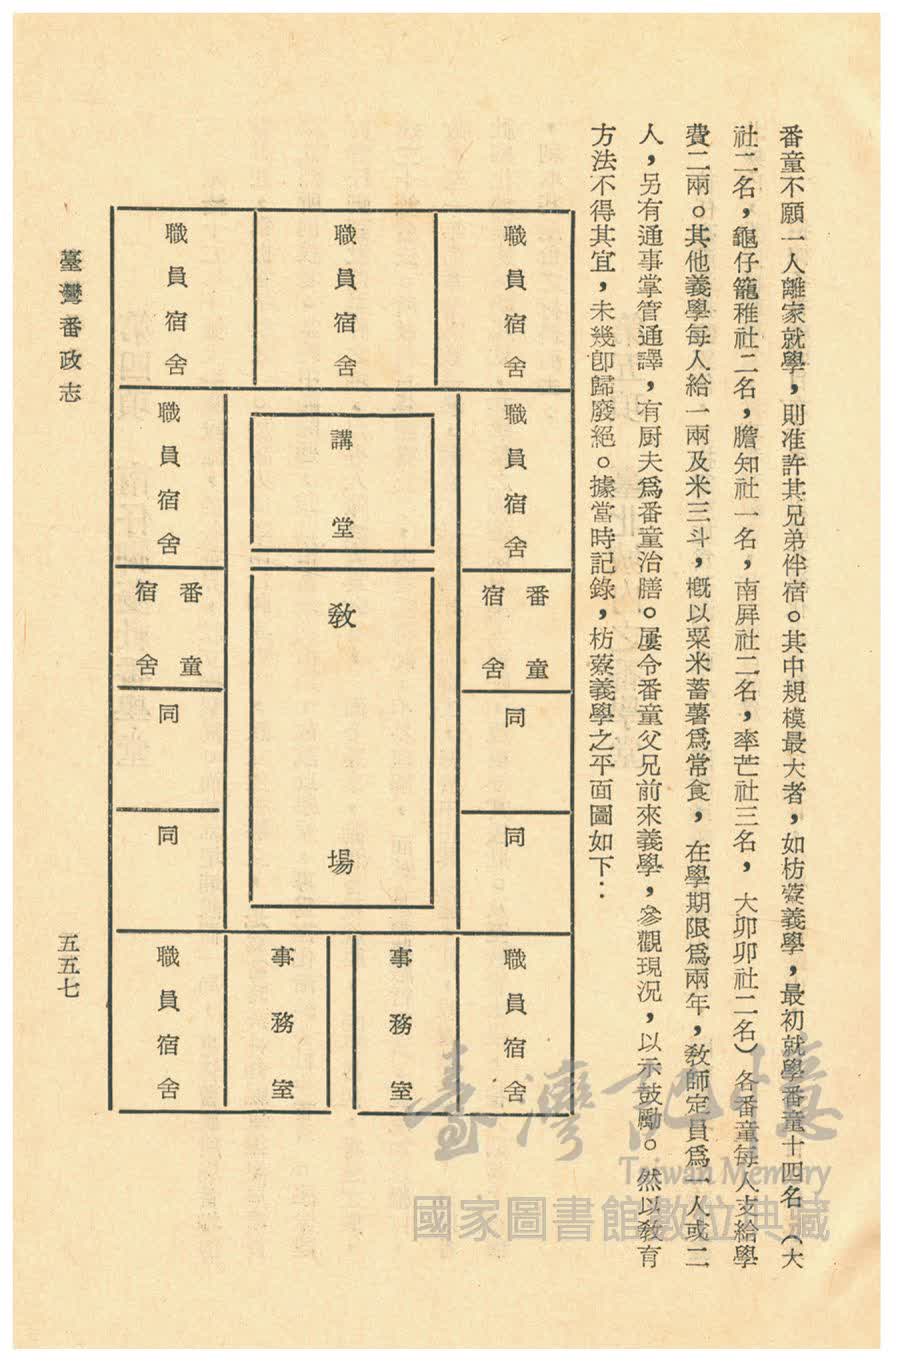 番童不願一人離家就學，則准許其兄弟伴宿。其中規模最大者，如枋藔義學，最初就學番童十四名（大
社二名，龜仔籠稚社二名，膽知社一名，南屏社二名，率芒社三名，大卯卯社二名）各番童每人支給學
費二兩。其他義學每人給一兩及米三斗，概以粟米蓄薯爲常食，在學期限爲兩年，教師定員爲一人或二
人，另有通事掌管通譯，有厨夫爲番童治膳。屢令番童父兄前來義學，參觀現況，以示鼓勵。然以教育
方法不得其宜，未幾卽歸廢絕。據當時記錄，枋藔義學之平面圖如下：
職員宿舍
職員宿舍
職員宿舍
職員宿舍
講堂
職員宿舍
番童宿舍
教場
番童宿舍
同
同
同
同
職員宿舍
事務室
事務室
職員宿舍
臺灣番政志
五五七
臺灣記憶
Taiwan Memory
國家圖書館數位典藏